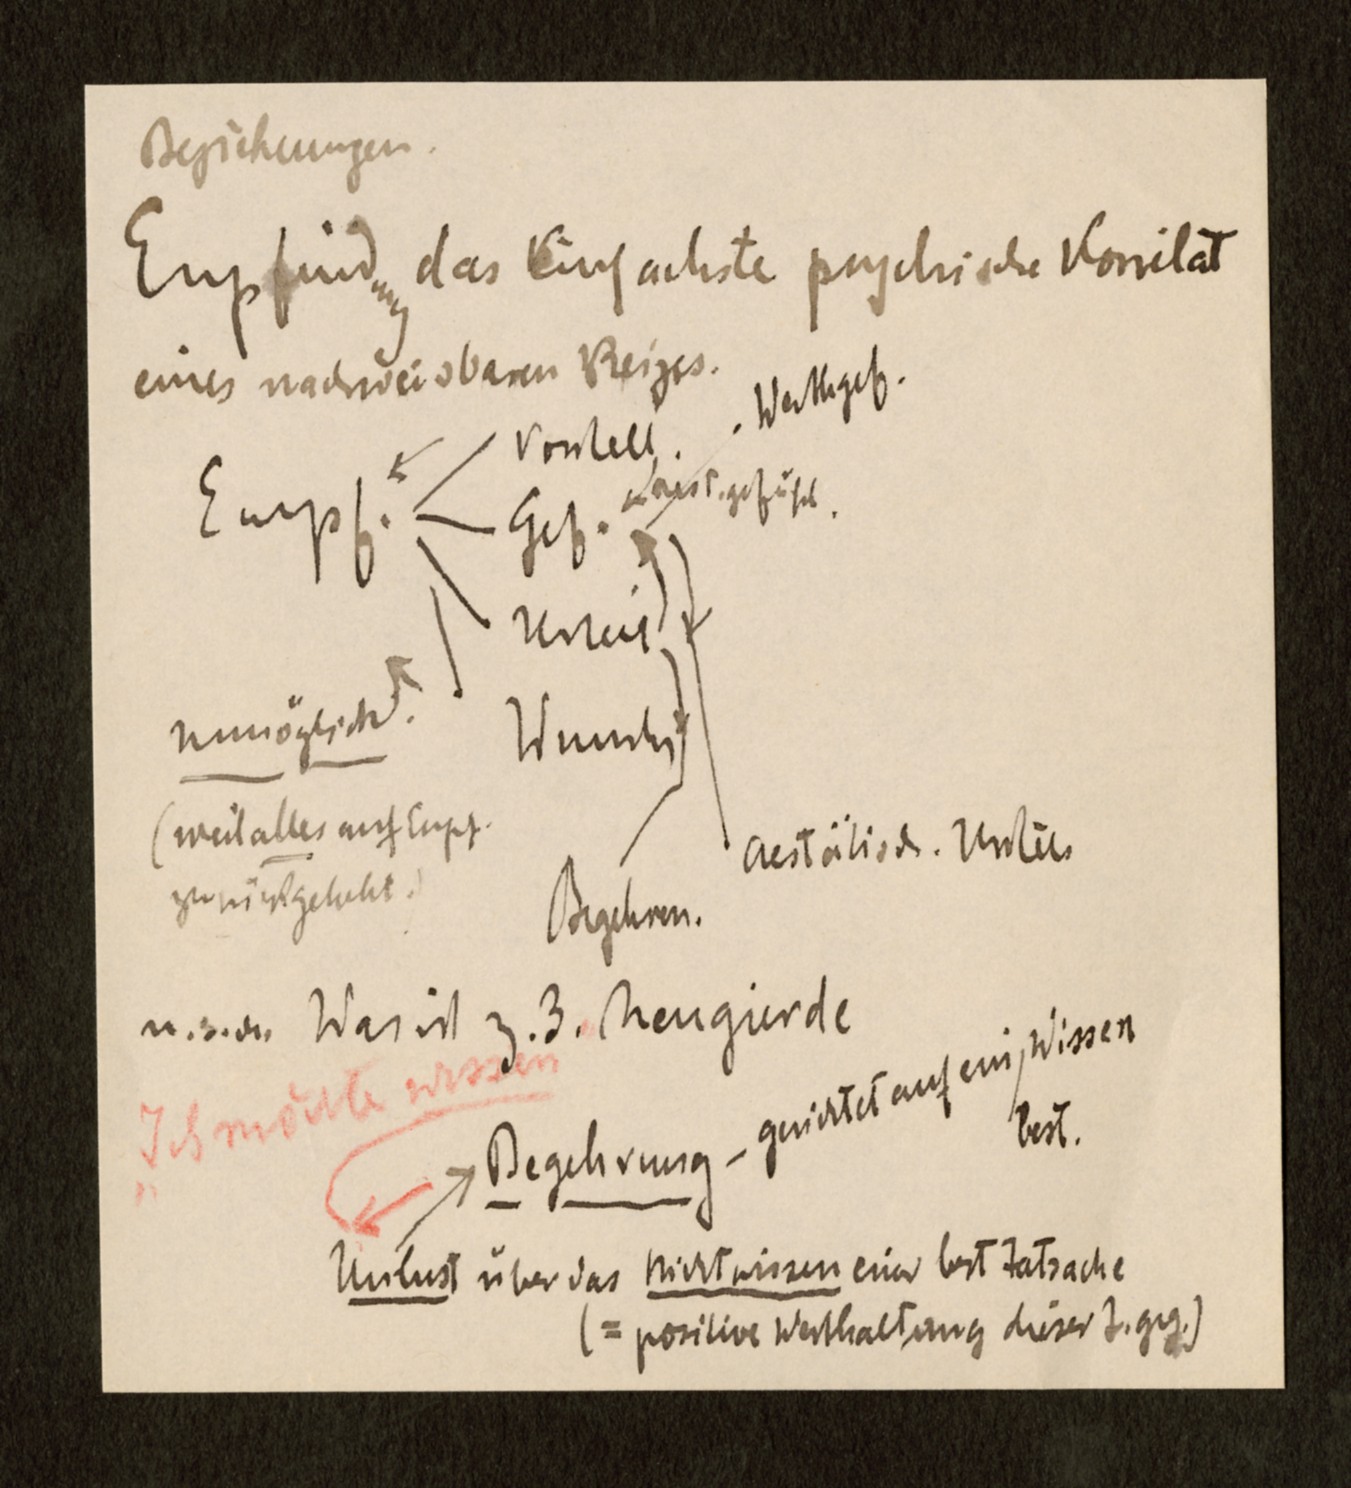 Beziehungen.
Empfindung das Einfachste psychische Korrelat
eines nachweisbaren Reizes.
Werthgef.
Vorstell.
Empf. Gef. aest. gefühl.
Urteil
unmöglich.
Wunsch
(weil alles auf Empf.
zurückgeht.)
aestätisch. Urteil
Begehren.
u.s.w. Was ist z.B. Neugierde
Ich möchte wissen
Begehrung – gerichtet auf ein Wissen
best.
Unlust über das Nichtwissen einer best Tatsache
(= positive Werthaltung dieser T. geg.)